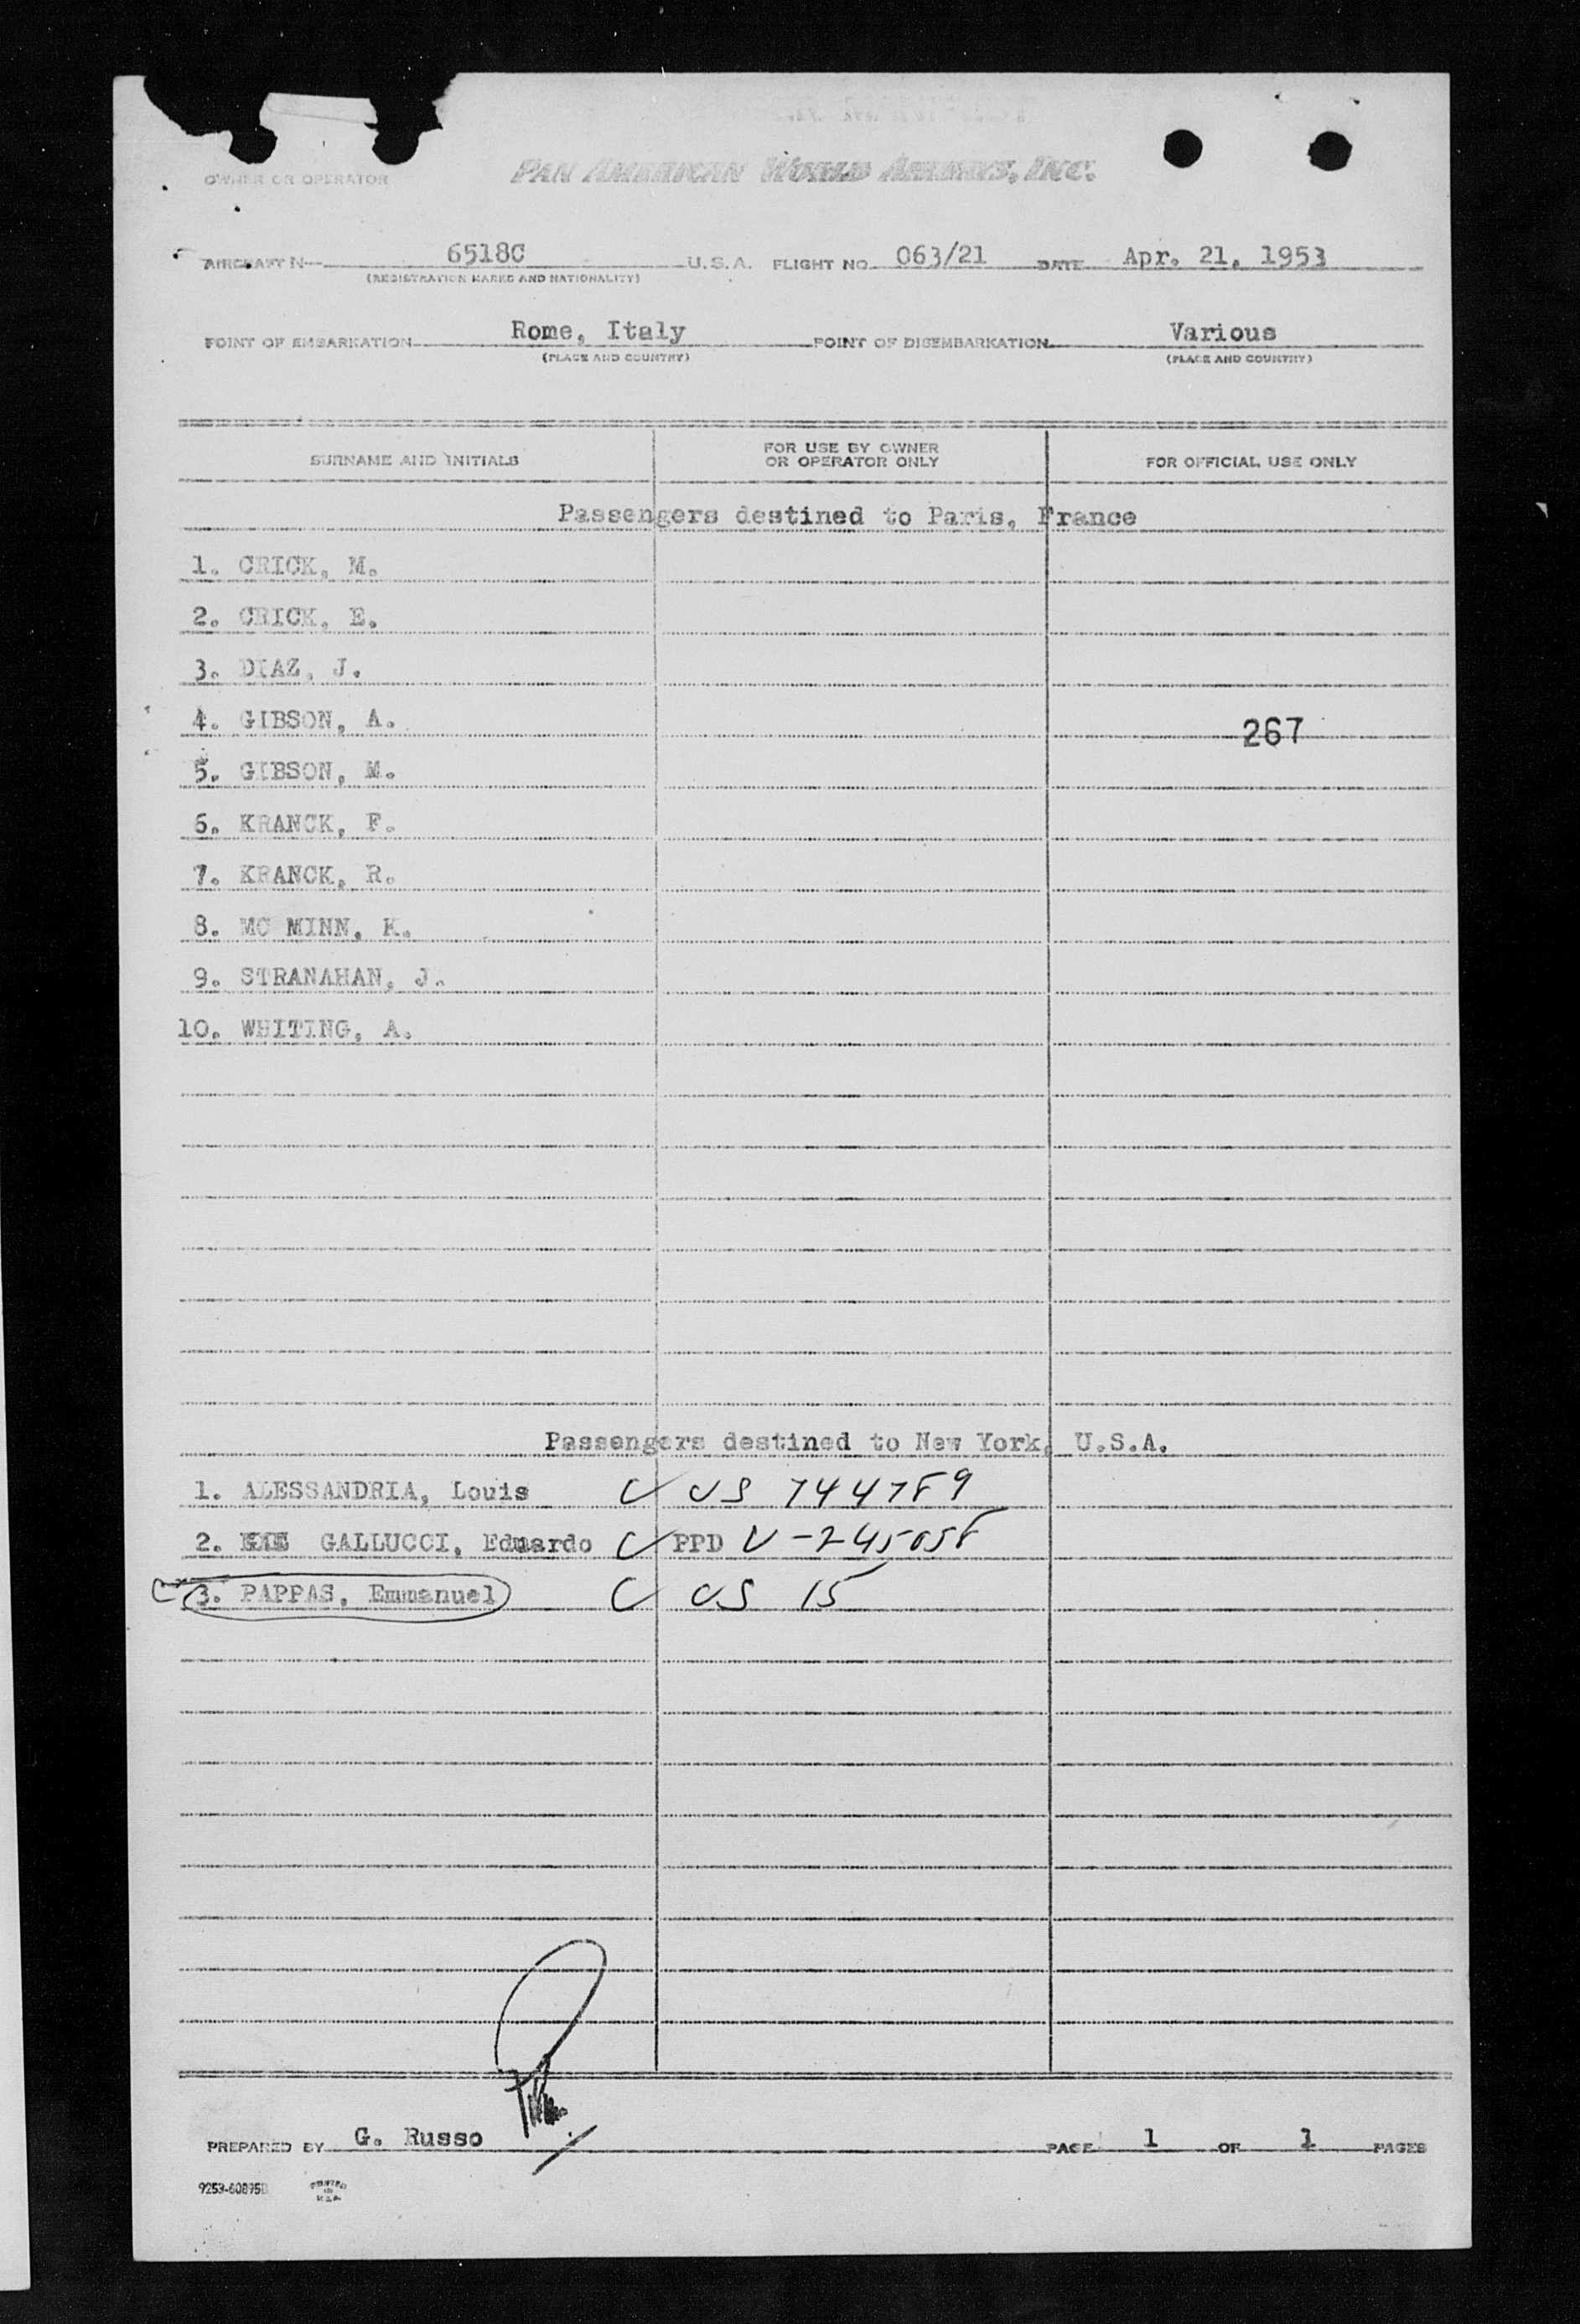 OWNER OR OPERATOR PAN AMERICAN WORLD AIRWAYS, INC.
AIRCRAFT N 6518C U.S.A. FLIGHT NO. 063/21 DATE Apr. 21, 1953
(REGISTRATION MARKS AND NATIONALITY)
POINT OF EMBARKATION Rome, Italy POINT OF DISEMBARKATION Various
(PLACE AND COUNTRY) (PLACE AND COUNTRY)
SURNAME AND INITIALS FOR USE BY OWNER OR OPERATOR ONLY FOR OFFICIAL USE ONLY
Passengers destined to Paris, France
1. CRICK, M.
2. CRICK, E.
3. DIAZ, J.
4. GIBSON, A. 267
5. GIBSON, M.
6. KRANCK, F.
7. KRANCK, R.
8. MC MINN, K.
9. STRANAHAN, J.
10. WHITING, A.
Passengers destined to New York, U.S.A.
1. ALESSANDRIA, Louis US 744789
2. GALLUCCI, Eduardo PPD V-245058
3. PAPPAS, Emmanuel US 15
PREPARED BY G. Russo PAGE 1 OF 1 PAGES
9253-60895D PRINTED IN U.S.A.